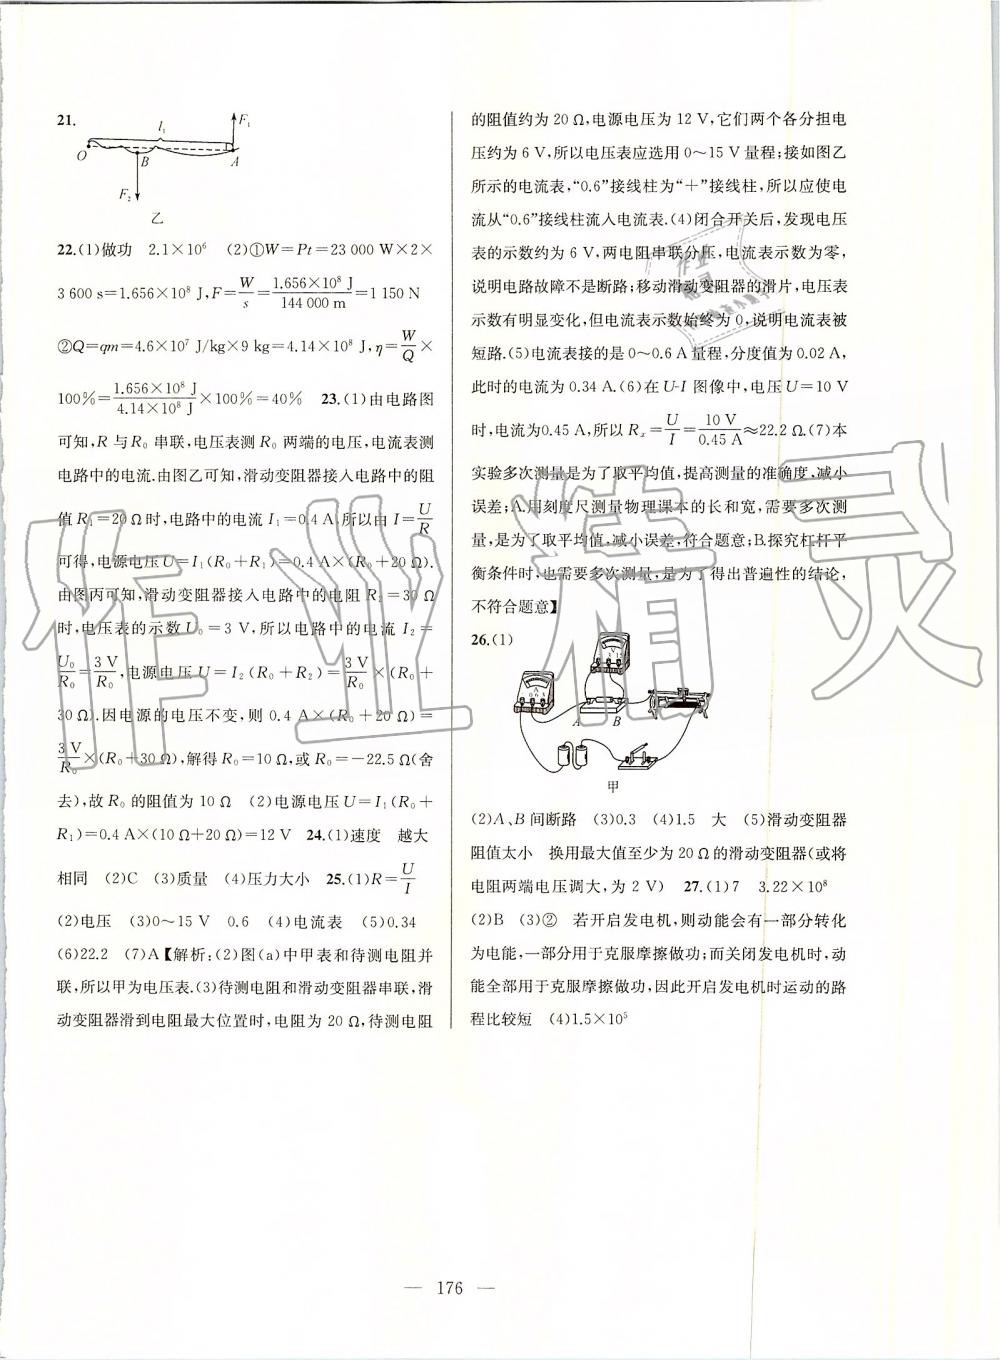 21.
F₁
l₁
O
B
A
F₂
乙
22.(1)做功　2.1×10⁶　(2)①W=Pt=23 000 W×2×
3 600 s=1.656×10⁸ J,F=W/s=1.656×10⁸ J/144 000 m=1 150 N
②Q=qm=4.6×10⁷ J/kg×9 kg=4.14×10⁸ J,η=W/Q×
100%=1.656×10⁸ J/4.14×10⁸ J×100%=40%　23.(1)由电路图
可知,R 与 R₀ 串联,电压表测 R₀ 两端的电压,电流表测
电路中的电流.由图乙可知,滑动变阻器接入电路中的阻
值 R₁=20 Ω时,电路中的电流 I₁=0.4 A,所以由 I=U/R
可得,电源电压U=I₁(R₀+R₁)=0.4 A×(R₀+20 Ω).
由图丙可知,滑动变阻器接入电路中的电阻 R₂=30 Ω
时,电压表的示数 U₀=3 V,所以电路中的电流 I₂=
U₀/R₀=3 V/R₀,电源电压 U=I₂(R₀+R₂)=3 V/R₀×(R₀+
30 Ω).因电源的电压不变,则 0.4 A×(R₀+20 Ω)=
3 V/R₀×(R₀+30 Ω),解得 R₀=10 Ω,或 R₀=−22.5 Ω(舍
去),故 R₀ 的阻值为 10 Ω　(2)电源电压 U=I₁(R₀+
R₁)=0.4 A×(10 Ω+20 Ω)=12 V　24.(1)速度　越大
相同　(2)C　(3)质量　(4)压力大小　25.(1)R=U/I
(2)电压　(3)0～15 V　0.6　(4)电流表　(5)0.34
(6)22.2　(7)A【解析:(2)图(a)中甲表和待测电阻并
联,所以甲为电压表.(3)待测电阻和滑动变阻器串联,滑
动变阻器滑到电阻最大位置时,电阻为 20 Ω,待测电阻
的阻值约为 20 Ω,电源电压为 12 V,它们两个各分担电
压约为 6 V,所以电压表应选用 0～15 V 量程;接如图乙
所示的电流表,“0.6”接线柱为“+”接线柱,所以应使电
流从“0.6”接线柱流入电流表.(4)闭合开关后,发现电压
表的示数约为 6 V,两电阻串联分压,电流表示数为零,
说明电路故障不是断路;移动滑动变阻器的滑片,电压表
示数有明显变化,但电流表示数始终为 0,说明电流表被
短路.(5)电流表接的是 0～0.6 A 量程,分度值为 0.02 A,
此时的电流为 0.34 A.(6)在 U-I 图像中,电压 U=10 V
时,电流为0.45 A,所以 Rₓ=U/I=10 V/0.45 A≈22.2 Ω.(7)本
实验多次测量是为了取平均值,提高测量的准确度,减小
误差;A.用刻度尺测量物理课本的长和宽,需要多次测
量,是为了取平均值,减小误差,符合题意;B.探究杠杆平
衡条件时,也需要多次测量,是为了得出普遍性的结论,
不符合题意】
26.(1)
A
B
甲
(2)A、B 间断路　(3)0.3　(4)1.5　大　(5)滑动变阻器
阻值太小　换用最大值至少为 20 Ω的滑动变阻器(或将
电阻两端电压调大,为 2 V)　27.(1)7　3.22×10⁸
(2)B　(3)②　若开启发电机,则动能会有一部分转化
为电能,一部分用于克服摩擦做功;而关闭发电机时,动
能全部用于克服摩擦做功,因此开启发电机时运动的路
程比较短　(4)1.5×10⁵
— 176 —
作业精灵